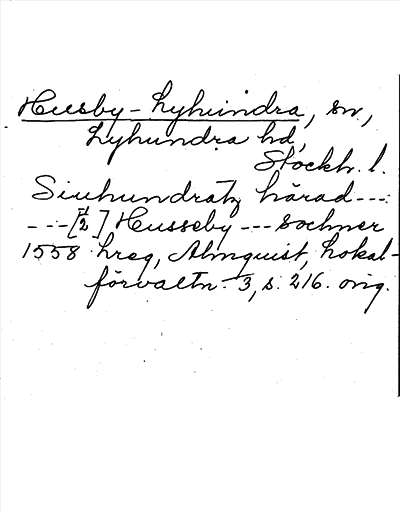 Husby-Lyhundra, sn,
Lyhundra hd,
Stockh. l.
Siuhundratz härad ---
---[2] Husseby --- sochner
1558 hreg, Almquist, Lokal-
förvaltn. 3, s. 216. orig.